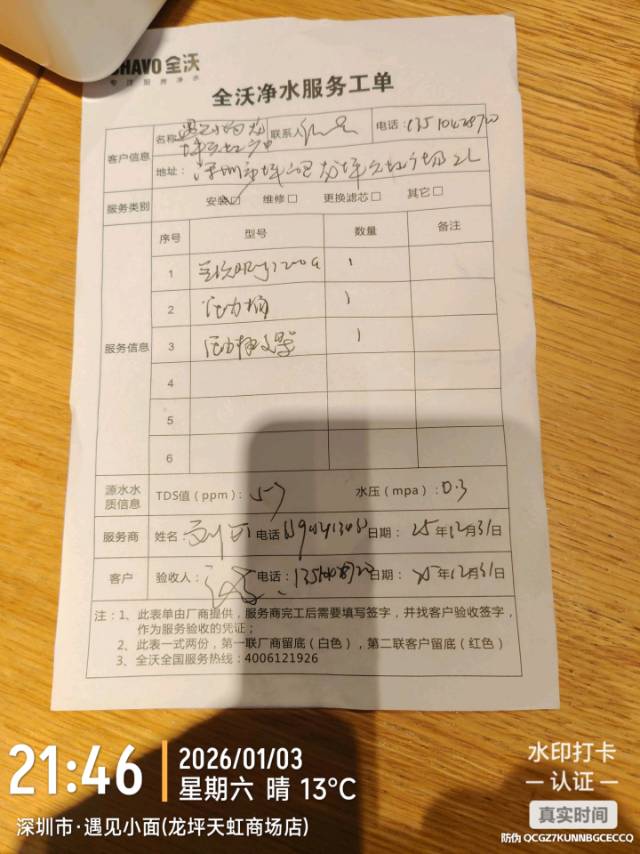 HAVO 全沃
专注厨房净水
全沃净水服务工单
客户信息 名称 遇见小面龙坪天虹广 联系人 电话:
地址: 深圳市坪山区龙坪天虹市场2L
服务类别 安装□ 维修□ 更换滤芯□ 其它□
服务信息 序号 型号 数量 备注
1 1
2 压力桶 1
3 1
4
5
6
源水水质信息 TDS值(ppm): 57 水压(mpa): 0.3
服务商 姓名: 电话 日期: 25年12月31日
客户 验收人: 电话: 日期: 25年12月31日
注:1、此表单由厂商提供,服务商完工后需要填写签字,并找客户验收签字,
作为服务验收的凭证;
2、此表一式两份,第一联厂商留底(白色),第二联客户留底(红色)
3、全沃全国服务热线:4006121926
21:46
2026/01/03
星期六 晴 13°C
深圳市·遇见小面(龙坪天虹商场店)
水印打卡
认证
真实时间
防伪 QCGZ7KUNNBGCECCQ